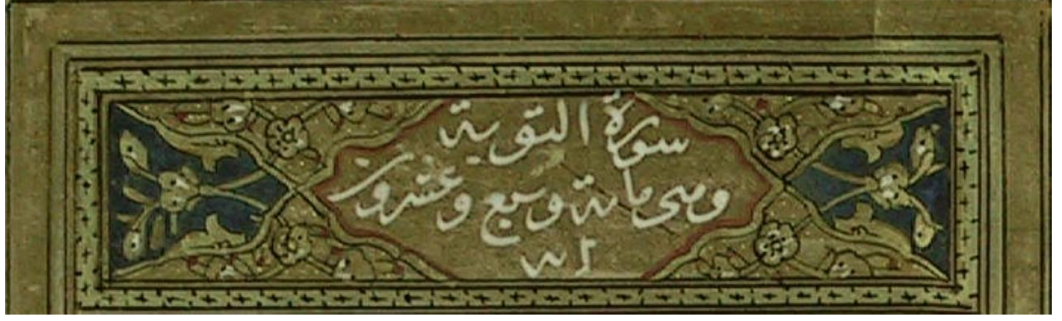 سورة التوبة
وهى ماىة وسبع وعشرون
اية